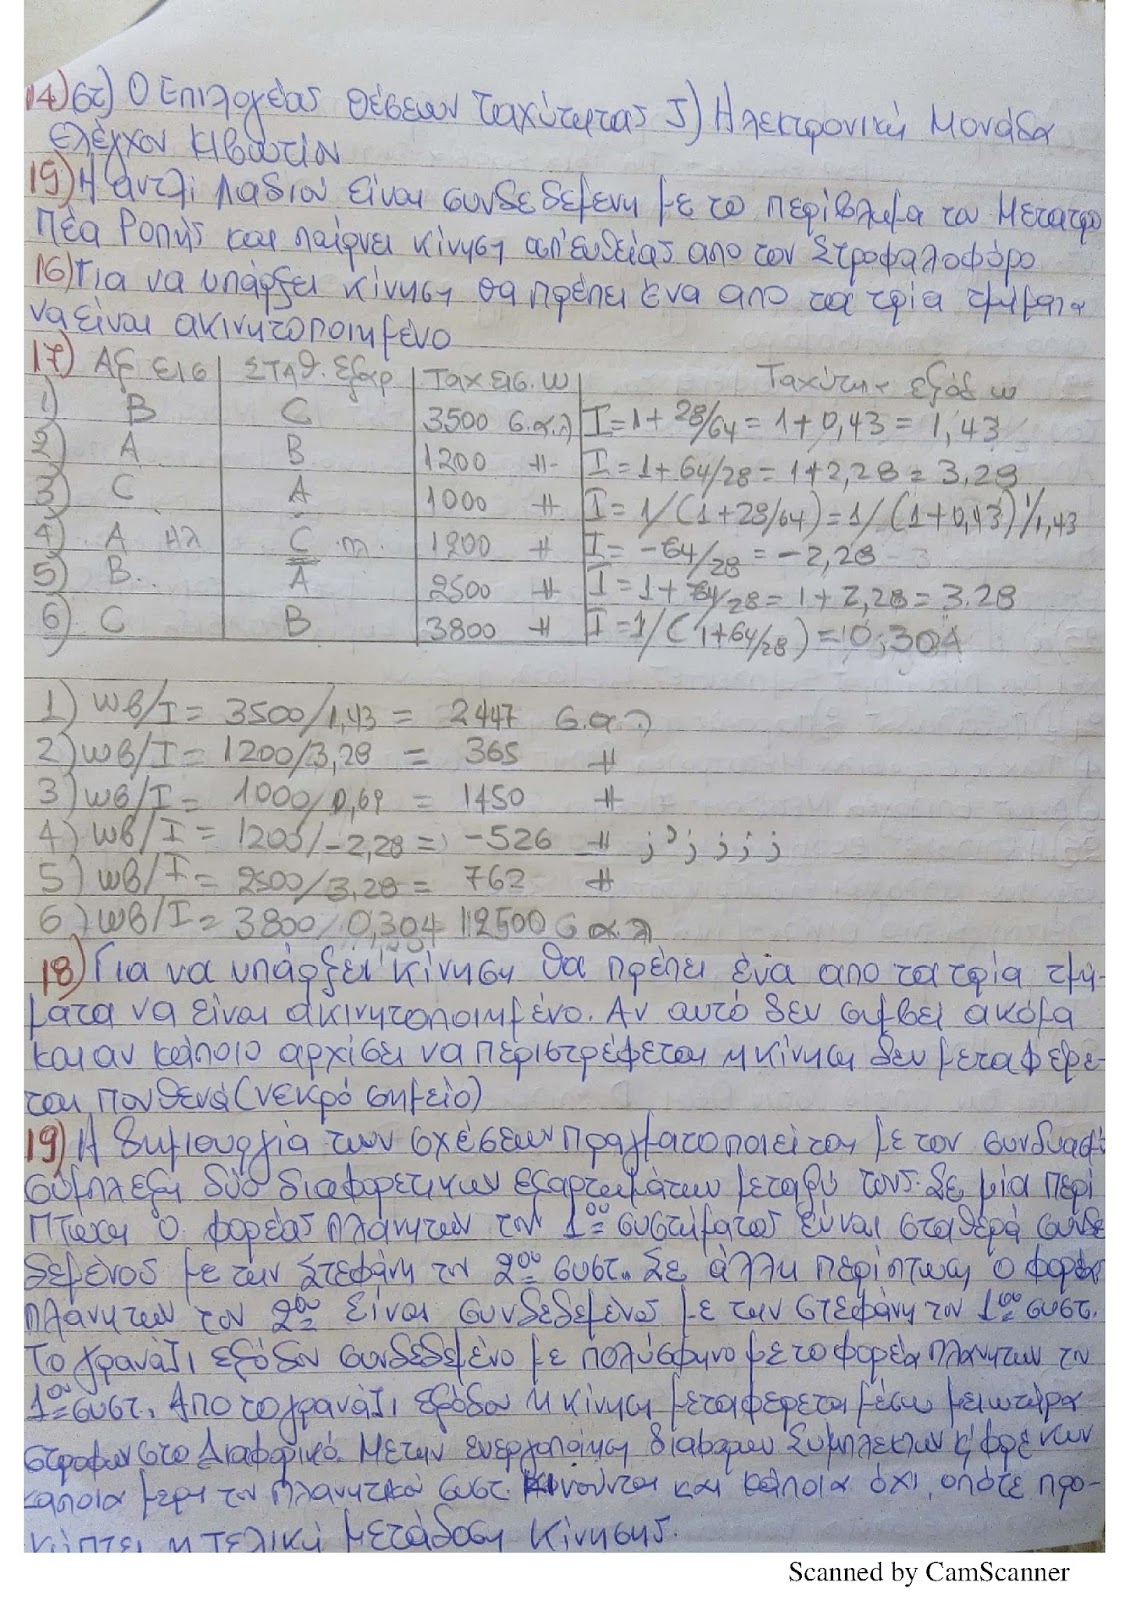 14) στ) Ο Επιλογέας θέσεων ταχύτητας J) Ηλεκτρονική Μονάδα
ελέγχου κιβωτίου
15) Η αντλί λαδιού είναι συνδεδεμενη με το περίβλημα του Μετατρο
πέα Ροπής και παίρνει κίνηση απ'ευθείας απο τον Στροφαλοφόρο
16) Για να υπάρξει κίνηση θα πρέπει ένα απο τα τρία τμήματα
να είναι ακινητοποιημένο
17) ΑΞ ΕΙΣ ΣΤΑΘ. Εξαρ Ταχ εισ. ω Ταχύτητ εξόδ ω
1) B C 3500 σ.α.λ I=1+28/64=1+0,43=1,43
2) A B 1200 -//- I=1+64/28=1+2,28=3.28
3) C A 1000 -//- I=1/(1+28/64)=1/(1+0,43) 1/1,43
4) A ηλ C πλ. 1200 -//- I=-64/28=-2,28
5) B.. A 2500 -//- I=1+64/28=1+2,28=3.28
6) C B 3800 -//- I=1/(1+64/28)=0,304
1) ωβ/I= 3500/1,43 = 2447 σ.α.λ
2) ωβ/I= 1200/3,28 = 365 -//-
3) ωβ/I= 1000/0,69 = 1450 -//-
4) ωβ/I= 1200/-2,28= -526 -//- ; ; ; ; ; ;
5) ωβ/I= 2500/3,28= 762 -//-
6) ωβ/I= 3800/0,304 12500 σ α.λ
18) Για να υπάρξει κίνηση θα πρέπει ένα απο τα τρία τμή-
ματα να είναι ακινητοποιημένο. Αν αυτό δεν συμβεί ακόμα
και αν κάποιο αρχίσει να περιστρέφεται η κίνηση δεν μεταφέρε-
ται πουθενά (νεκρό σημείο)
19) Η δημιουργία των σχέσεων πραγματοποιείται με τον συνδυασμ
σύμπλεξη δύο διαφορετικων εξαρτημάτων μεταξύ τους. Σε μία περί
πτωση ο φορέας πλανητών του 1ου συστήματος είναι σταθερά συνδε
δεμένος με την Στεφάνη του 2ου συστ. Σε άλλη περίπτωση ο φορέα
πλανητων του 2ου είναι συνδεδεμένος με την στεφάνη του 1ου συστ.
Το γρανάζι εξόδου συνδεδεμένο με πολύσφηνο με το φορέα πλανητων του
1ου συστ. Απο το γρανάζι εξόδου η κίνηση μεταφέρεται μέσω μειωτήρα
στροφων στο Διαφορικό. Με την ενεργοποίηση διάφορων Συμπλεκτων ή φρένων
κάποια μερη του πλανητικού συστ. κινούνται και κάποια όχι, οπότε προ-
κύπτει η τελική μετάδοση κίνησης.
Scanned by CamScanner